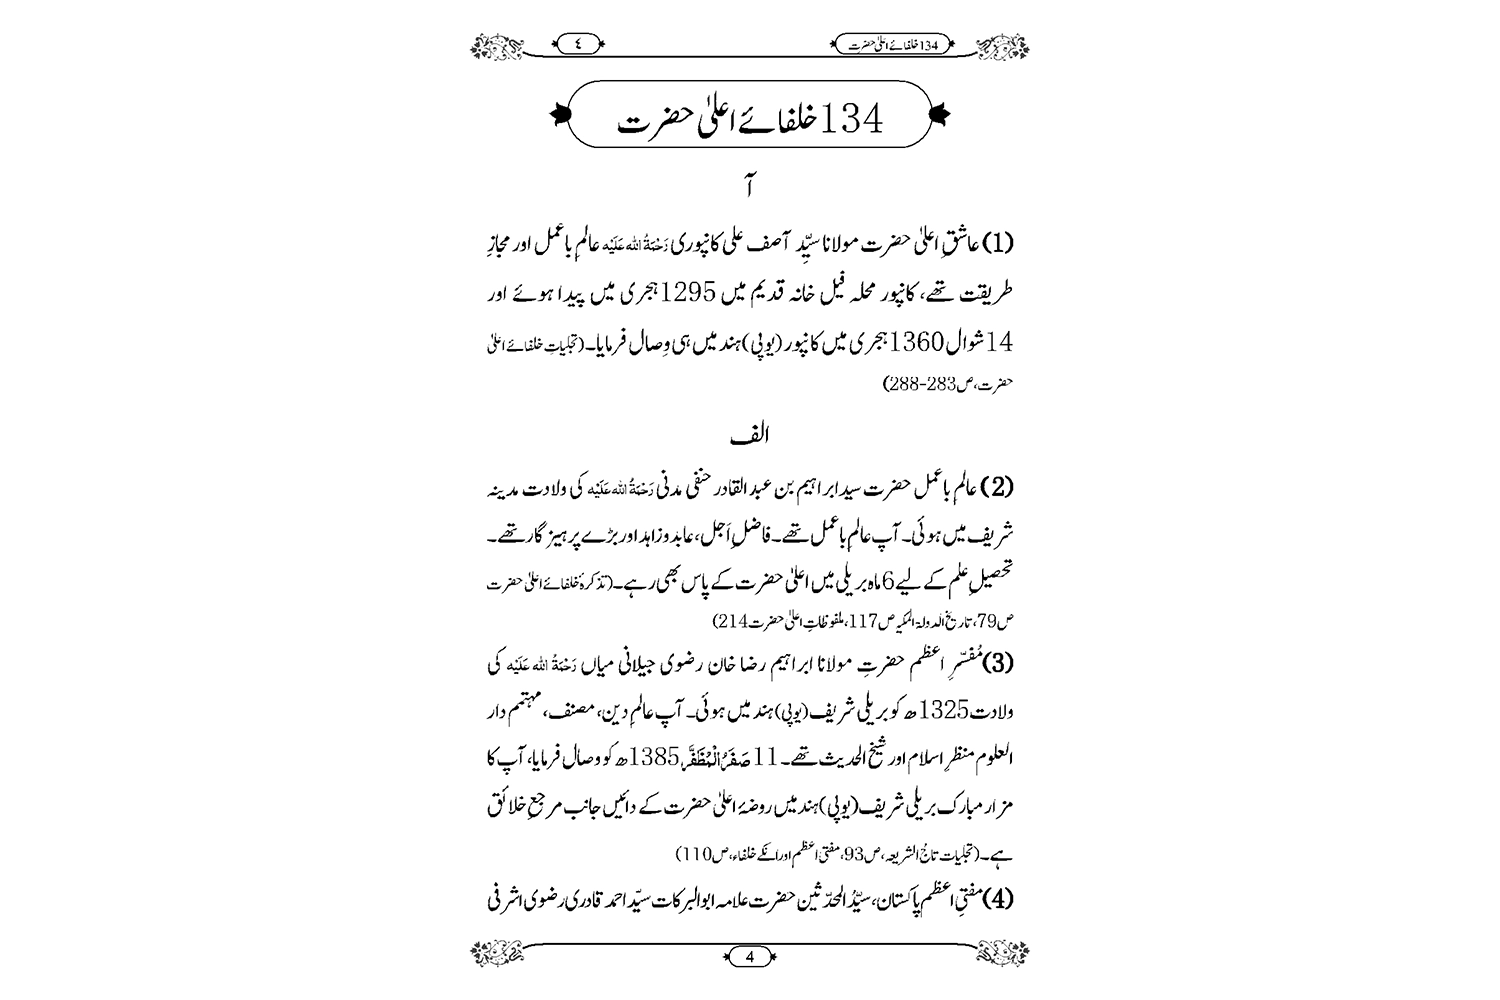 134 خلفائے اعلیٰ حضرت
٤
134 خلفائے اعلیٰ حضرت
آ
(1) عاشقِ اعلیٰ حضرت مولانا سیِّد آصف علی کانپوری رَحْمَۃُ اللہ عَلَیْہ عالمِ باعمل اور مجازِ
طریقت تھے، کانپور محلہ فیل خانہ قدیم میں 1295ہجری میں پیدا ہوئے اور
14 شوال 1360ہجری میں کانپور (یوپی) ہند میں ہی وِصال فرمایا۔ (تجلیاتِ خلفائے اعلیٰ
حضرت، ص283-288)
الف
(2) عالمِ باعمل حضرت سید ابراہیم بن عبد القادر حنفی مدنی رَحْمَۃُ اللہ عَلَیْہ کی ولادت مدینہ
شریف میں ہوئی۔ آپ عالمِ باعمل تھے۔ فاضلِ اَجل، عابد و زاہد اور بڑے پرہیز گار تھے۔
تحصیلِ علم کے لیے 6 ماہ بریلی میں اعلیٰ حضرت کے پاس بھی رہے۔ (تذکرۂ خلفائے اعلیٰ حضرت
ص79، تاریخ الدولۃ المکیہ ص117، ملفوظاتِ اعلیٰ حضرت 214)
(3) مُفَسِّرِ اعظم حضرتِ مولانا ابراہیم رضا خان رضوی جیلانی میاں رَحْمَۃُ اللہ عَلَیْہ کی
ولادت 1325ھ کو بریلی شریف (یوپی) ہند میں ہوئی۔ آپ عالمِ دین، مصنف، مہتمم دار
العلوم منظرِ اسلام اور شیخ الحدیث تھے۔ 11 صَفَرُ الْمُظَفَّر 1385ھ کو وصال فرمایا، آپ کا
مزار مبارک بریلی شریف (یوپی) ہند میں روضۂ اعلیٰ حضرت کے دائیں جانب مرجعِ خلائق
ہے۔ (تجلیات تاجُ الشریعہ، ص93، مفتی اعظم اور انکے خلفاء، ص110)
(4) مفتیِ اعظم پاکستان، سیِّدُ المحدّثین حضرت علامہ ابوالبرکات سیِّد احمد قادری رضوی اشرفی
4